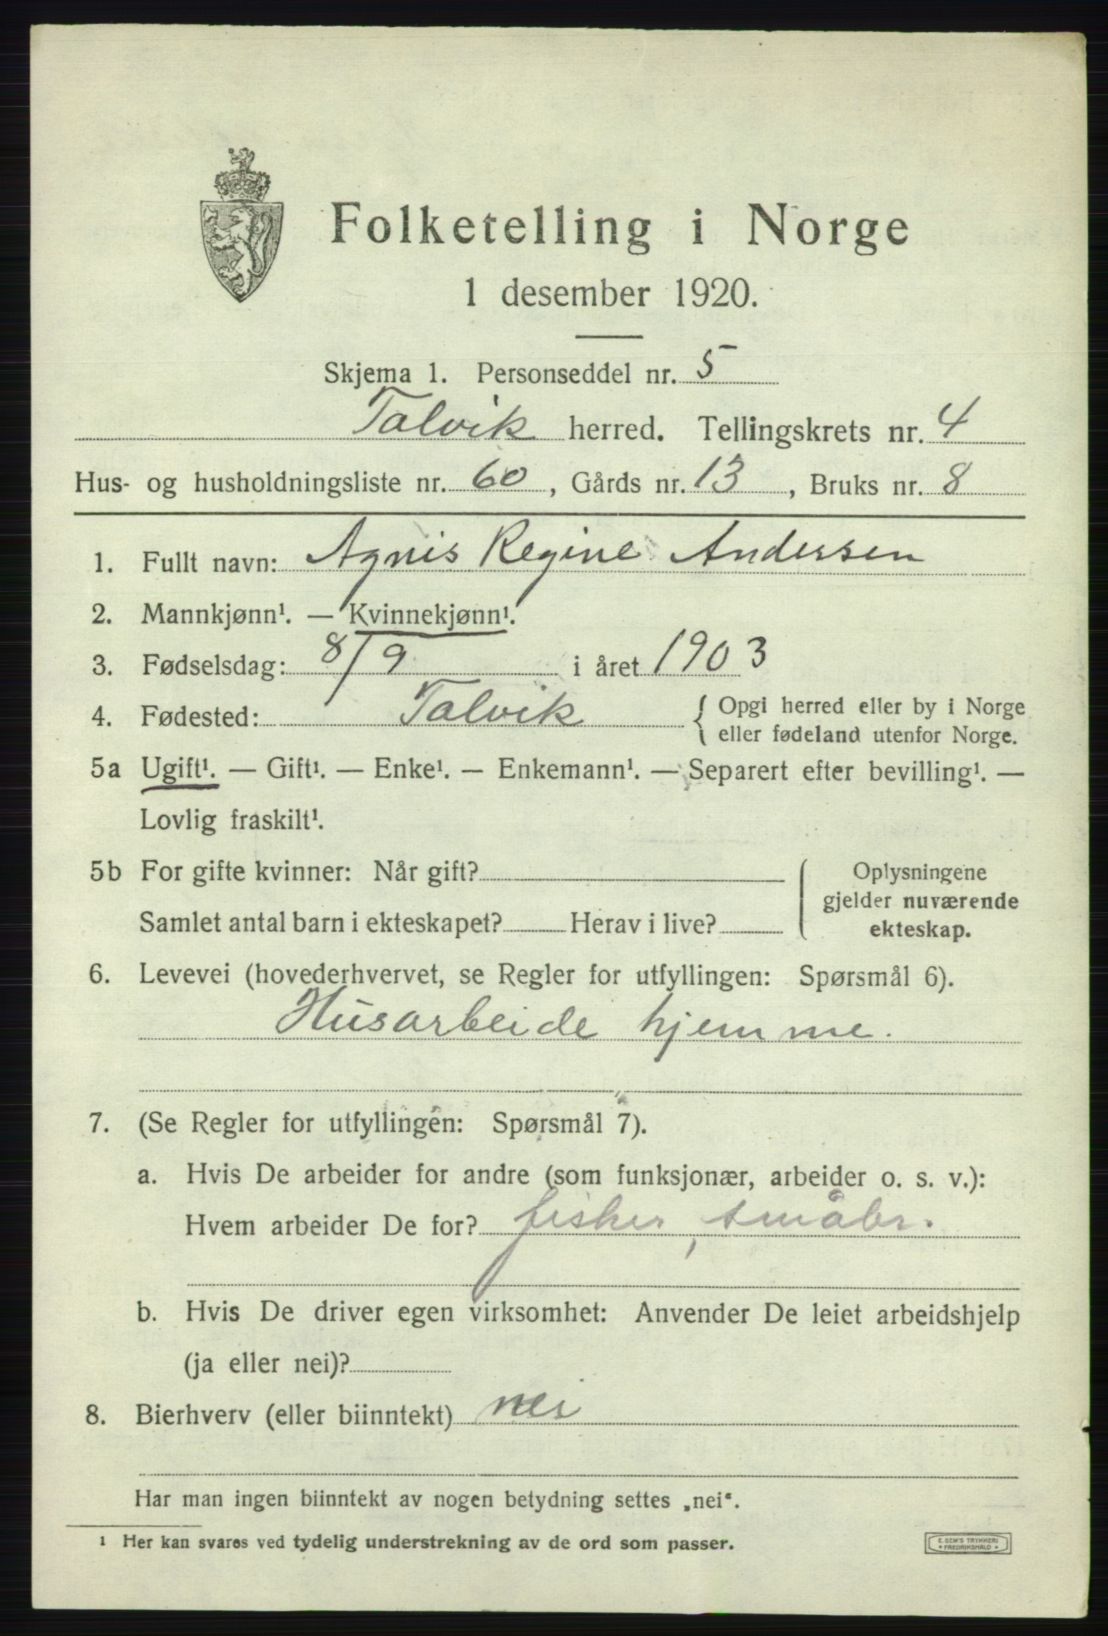 Folketelling i Norge
1 desember 1920.
Skjema 1. Personseddel nr. 5
Talvik herred. Tellingskrets nr. 4
Hus- og husholdningsliste nr. 60, Gårds nr. 13, Bruks nr. 8
1. Fullt navn: Agnis Regine Andersen
2. Mannkjønn¹. — Kvinnekjønn¹.
3. Fødselsdag: 8/9 i året 1903
4. Fødested: Talvik { Opgi herred eller by i Norge
eller fødeland utenfor Norge.
5a Ugift¹. — Gift¹. — Enke¹. — Enkemann¹. — Separert efter bevilling¹. —
Lovlig fraskilt¹.
5b For gifte kvinner: Når gift?
Samlet antal barn i ekteskapet? Herav i live?
Oplysningene
gjelder nuværende
ekteskap.
6. Levevei (hovederhvervet, se Regler for utfyllingen: Spørsmål 6).
Husarbeide hjemme.
7. (Se Regler for utfyllingen: Spørsmål 7).
a. Hvis De arbeider for andre (som funksjonær, arbeider o. s. v.):
Hvem arbeider De for? fisker, småbr.
b. Hvis De driver egen virksomhet: Anvender De leiet arbeidshjelp
(ja eller nei)?
8. Bierhverv (eller biinntekt) nei
Har man ingen biinntekt av nogen betydning settes „nei“.
¹ Her kan svares ved tydelig understrekning av de ord som passer.
E. SEM'S TRYKKERI
• FREDRIKSHALD •